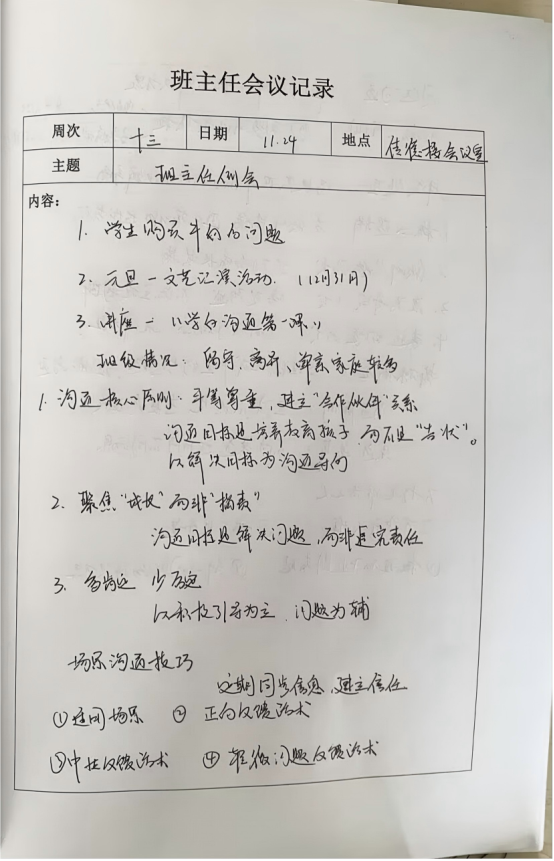 班主任会议记录
周次 十三 日期 11.24 地点 会议室
主题 班主任例会
内容:
1. 学生购买平台的问题
2. 元旦-文艺汇演活动. (12月31日)
3. 讲座-《学会沟通第一课》
班级情况: 留守、离异、单亲家庭较多
1. 沟通核心原则: 平等尊重, 建立"合作伙伴"关系
沟通目标是培养教育孩子 而不是"告状"。
以解决目标为沟通导向
2. 聚焦"成长"而非"指责"
沟通目标是解决问题, 而非追究责任
3. 多肯定 少否定
以积极引导为主. 问题为辅
场景沟通技巧
定期同步信息, 建立信任
①通用场景 ② 正向反馈话术
③中性反馈话术 ④ 轻微问题反馈话术